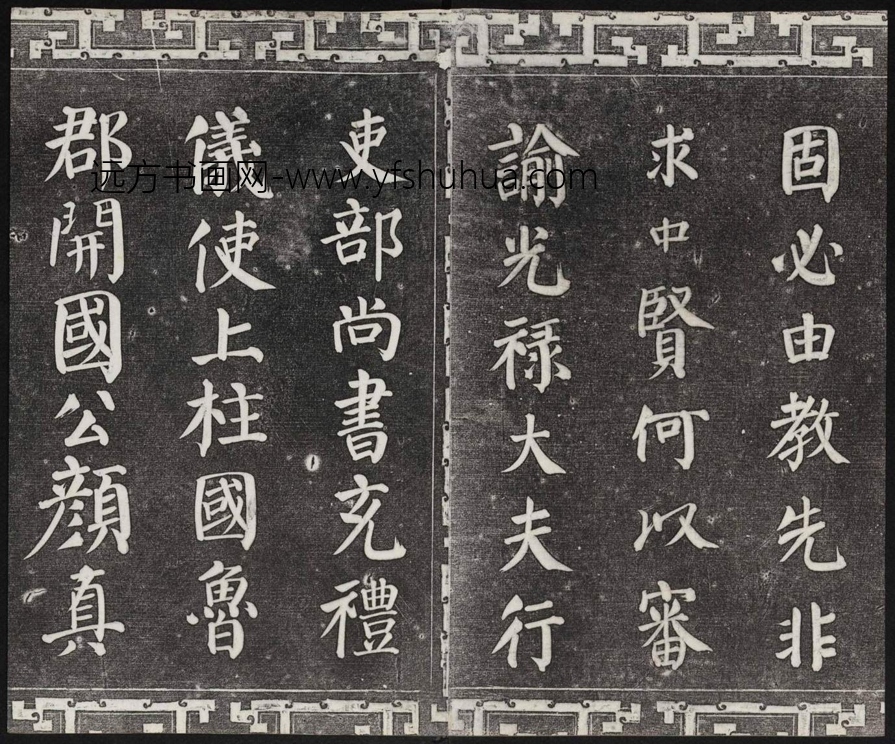 固必由教先非
求中賢何以審
諭光禄大夫行
吏部尚書充禮
儀使上柱國魯
郡開國公顔真
远方书画网-www.yfshuhua.com